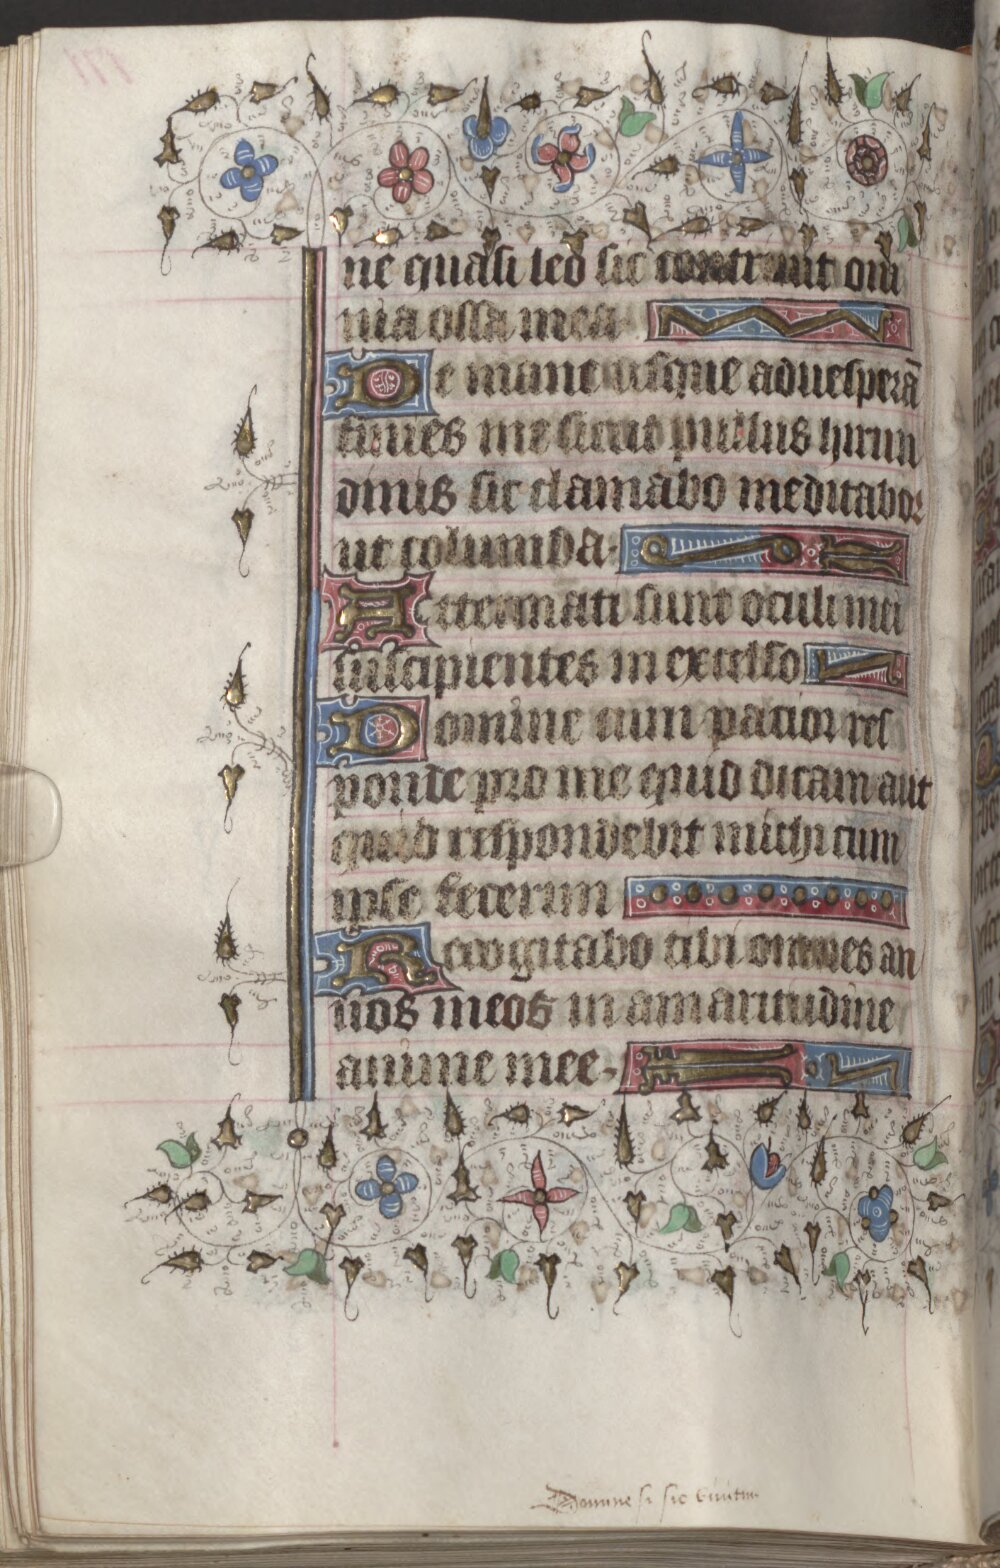 ne quasi leo sic contriuit om
nia ossa mea
De mane usque ad uespera
finies me sicut pullus hirun
dinis sic clamabo meditabor
ut columba.
Attenuati sunt oculi mei
suspicientes in excelso
Domine uim patior res
ponde pro me quid dicam aut
quid respondebit michi cum
ipse fecerim
Recogitabo tibi omnes an
nos meos in amaritudine
anime mee.
Domine si sic uiuitur